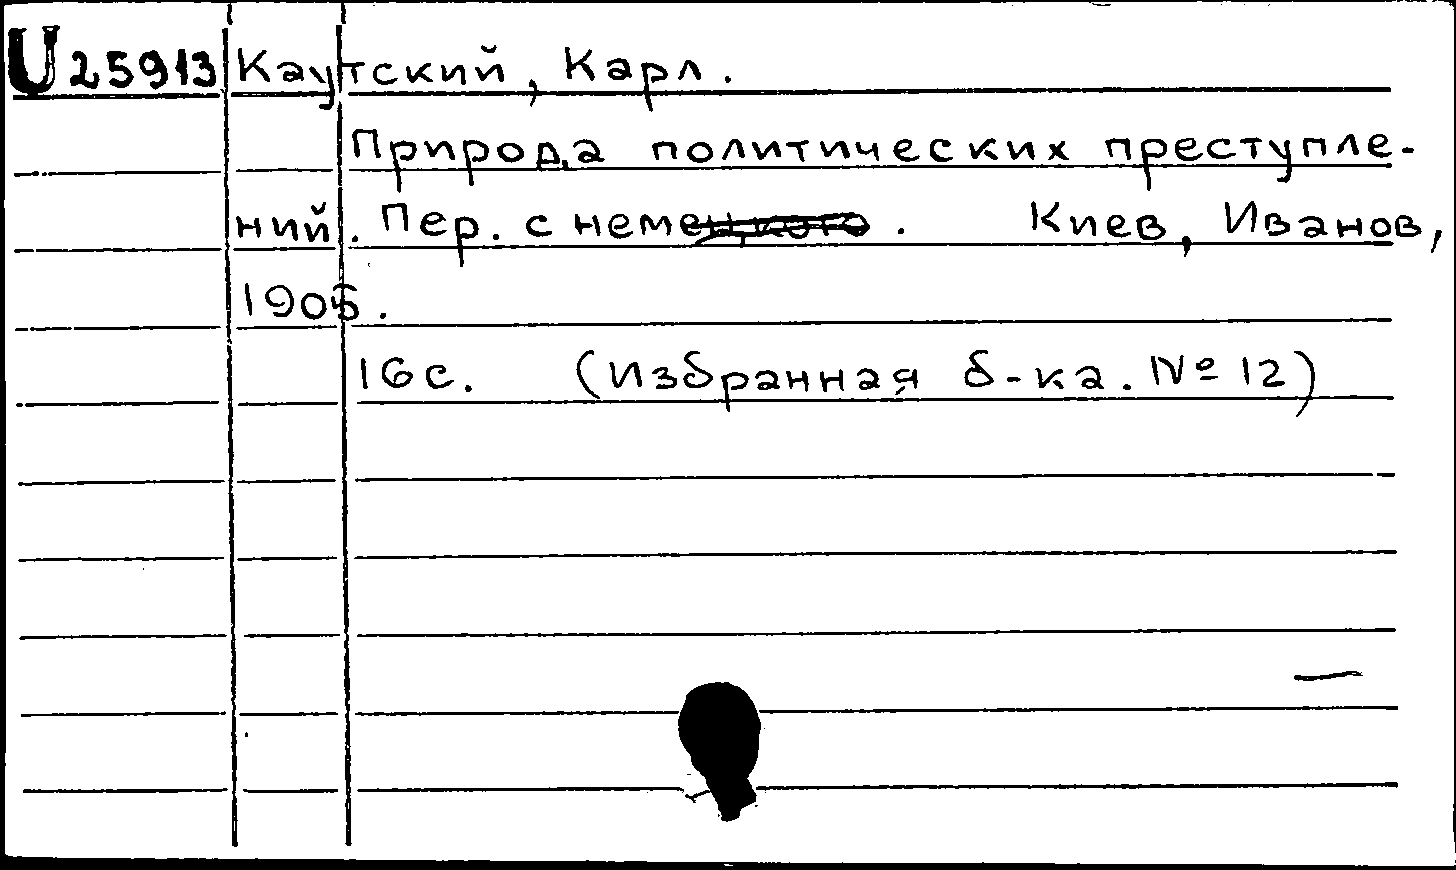 U 25913 Каутский, Карл.
Природа политических преступле-
ний. Пер. с нем. Киев, Иванов,
1906.
16 с. (Избранная б-ка. № 12)